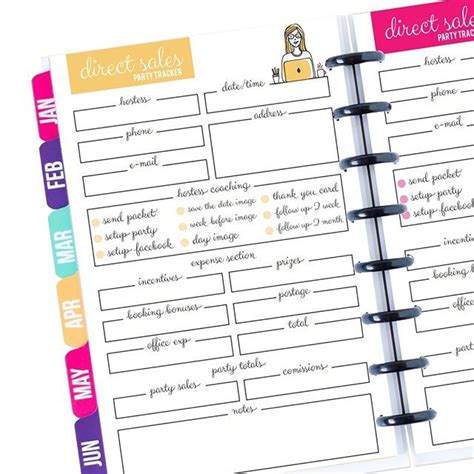 direct sales
PARTY TRACKER
hostess
date/time
phone
address
e-mail
hostess coaching
send packet
save the date image
thank you card
setup-party
week before image
follow up 2 week
setup-facebook
day image
follow up 2 month
expense section
incentives
prizes
booking bonuses
postage
office exp
total
party totals
party sales
comissions
notes
JAN
FEB
MAR
APR
MAY
JUN
direct sales
PARTY TRACKER
hostess
phone
e-mail
send packet
setup-party
setup-facebook
incentives
booking bonuses
office exp
party sales